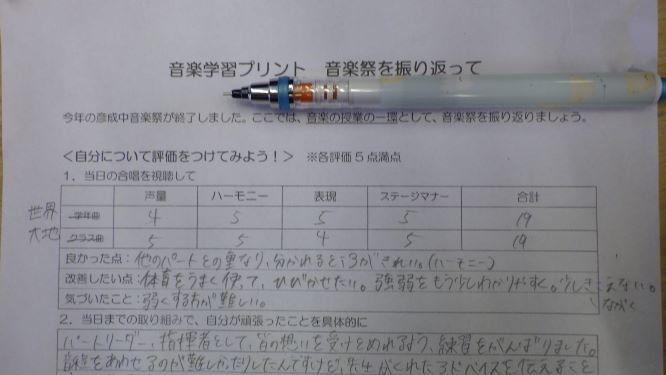 音楽学習プリント 音楽祭を振り返って
今年の彦成中音楽祭が終了しました。ここでは、音楽の授業の一環として、音楽祭を振り返りましょう。
＜自分について評価をつけてみよう！＞ ※各評価５点満点
１．当日の合唱を視聴して
声量 ハーモニー 表現 ステージマナー 合計
世界 学年曲 4 5 5 5 19
大地 クラス曲 5 5 4 5 19
良かった点：他のパートとの重なり、分かれるところがきれい。(ハーモニー)
改善したい点：体育をうまく使って、ひびかせたい。強弱をもう少しわかりやすく。
ながく
気づいたこと：弱くする方が難しい。
２．当日までの取り組みで、自分が頑張ったことを具体的に
パートリーダー、指揮者として、皆の想いを受けとめれるよう、練習をがんばりました。
あわせるのが難しかったりしたんですけど、 アドバイスを伝えること